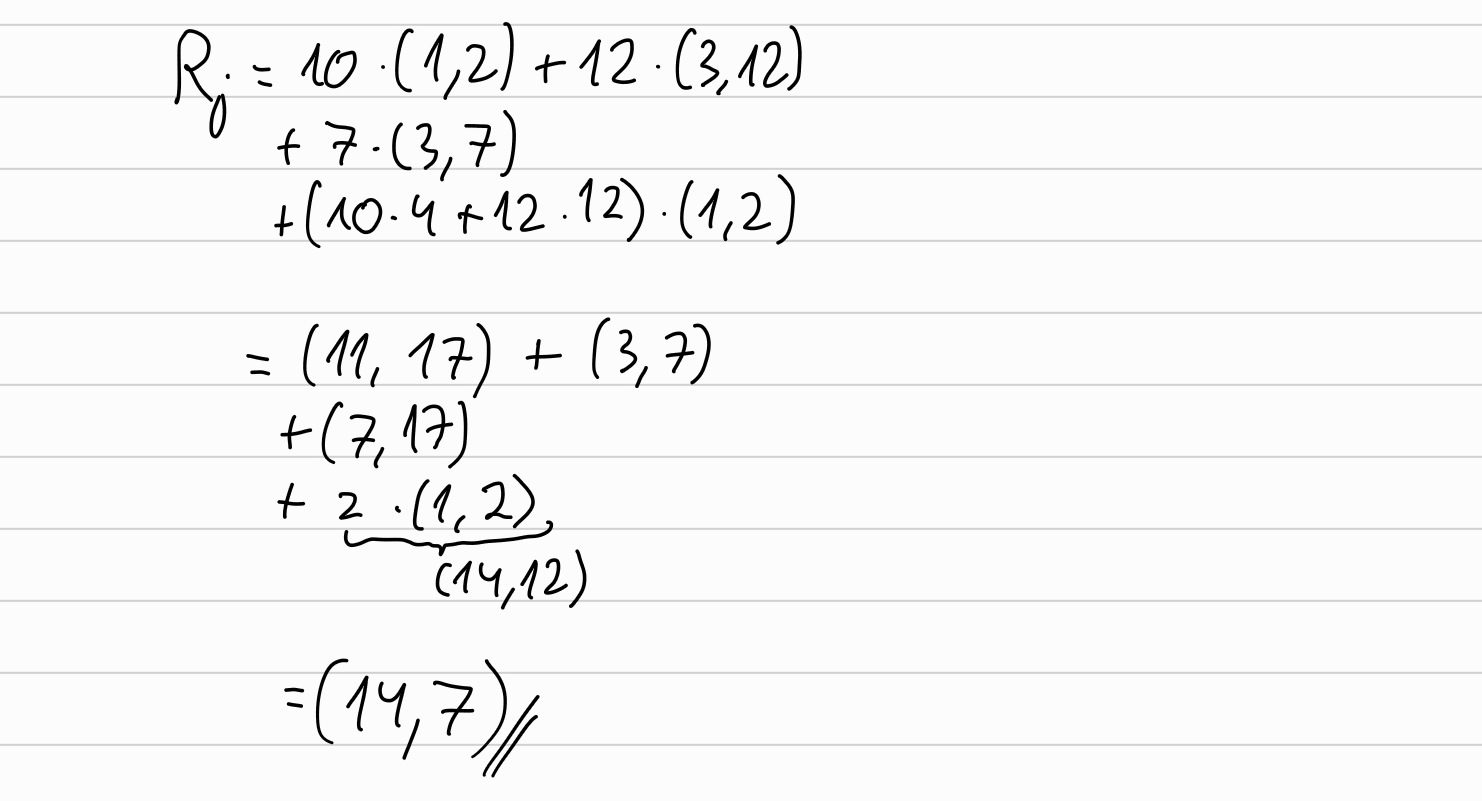 Rj = 10 · (1,2) + 12 · (3,12)
+ 7 · (3,7)
+ (10 · 4 + 12 · 12) · (1,2)
= (11, 17) + (3,7)
+ (7,17)
+ 2 · (1,2)
(14,12)
= (14,7)